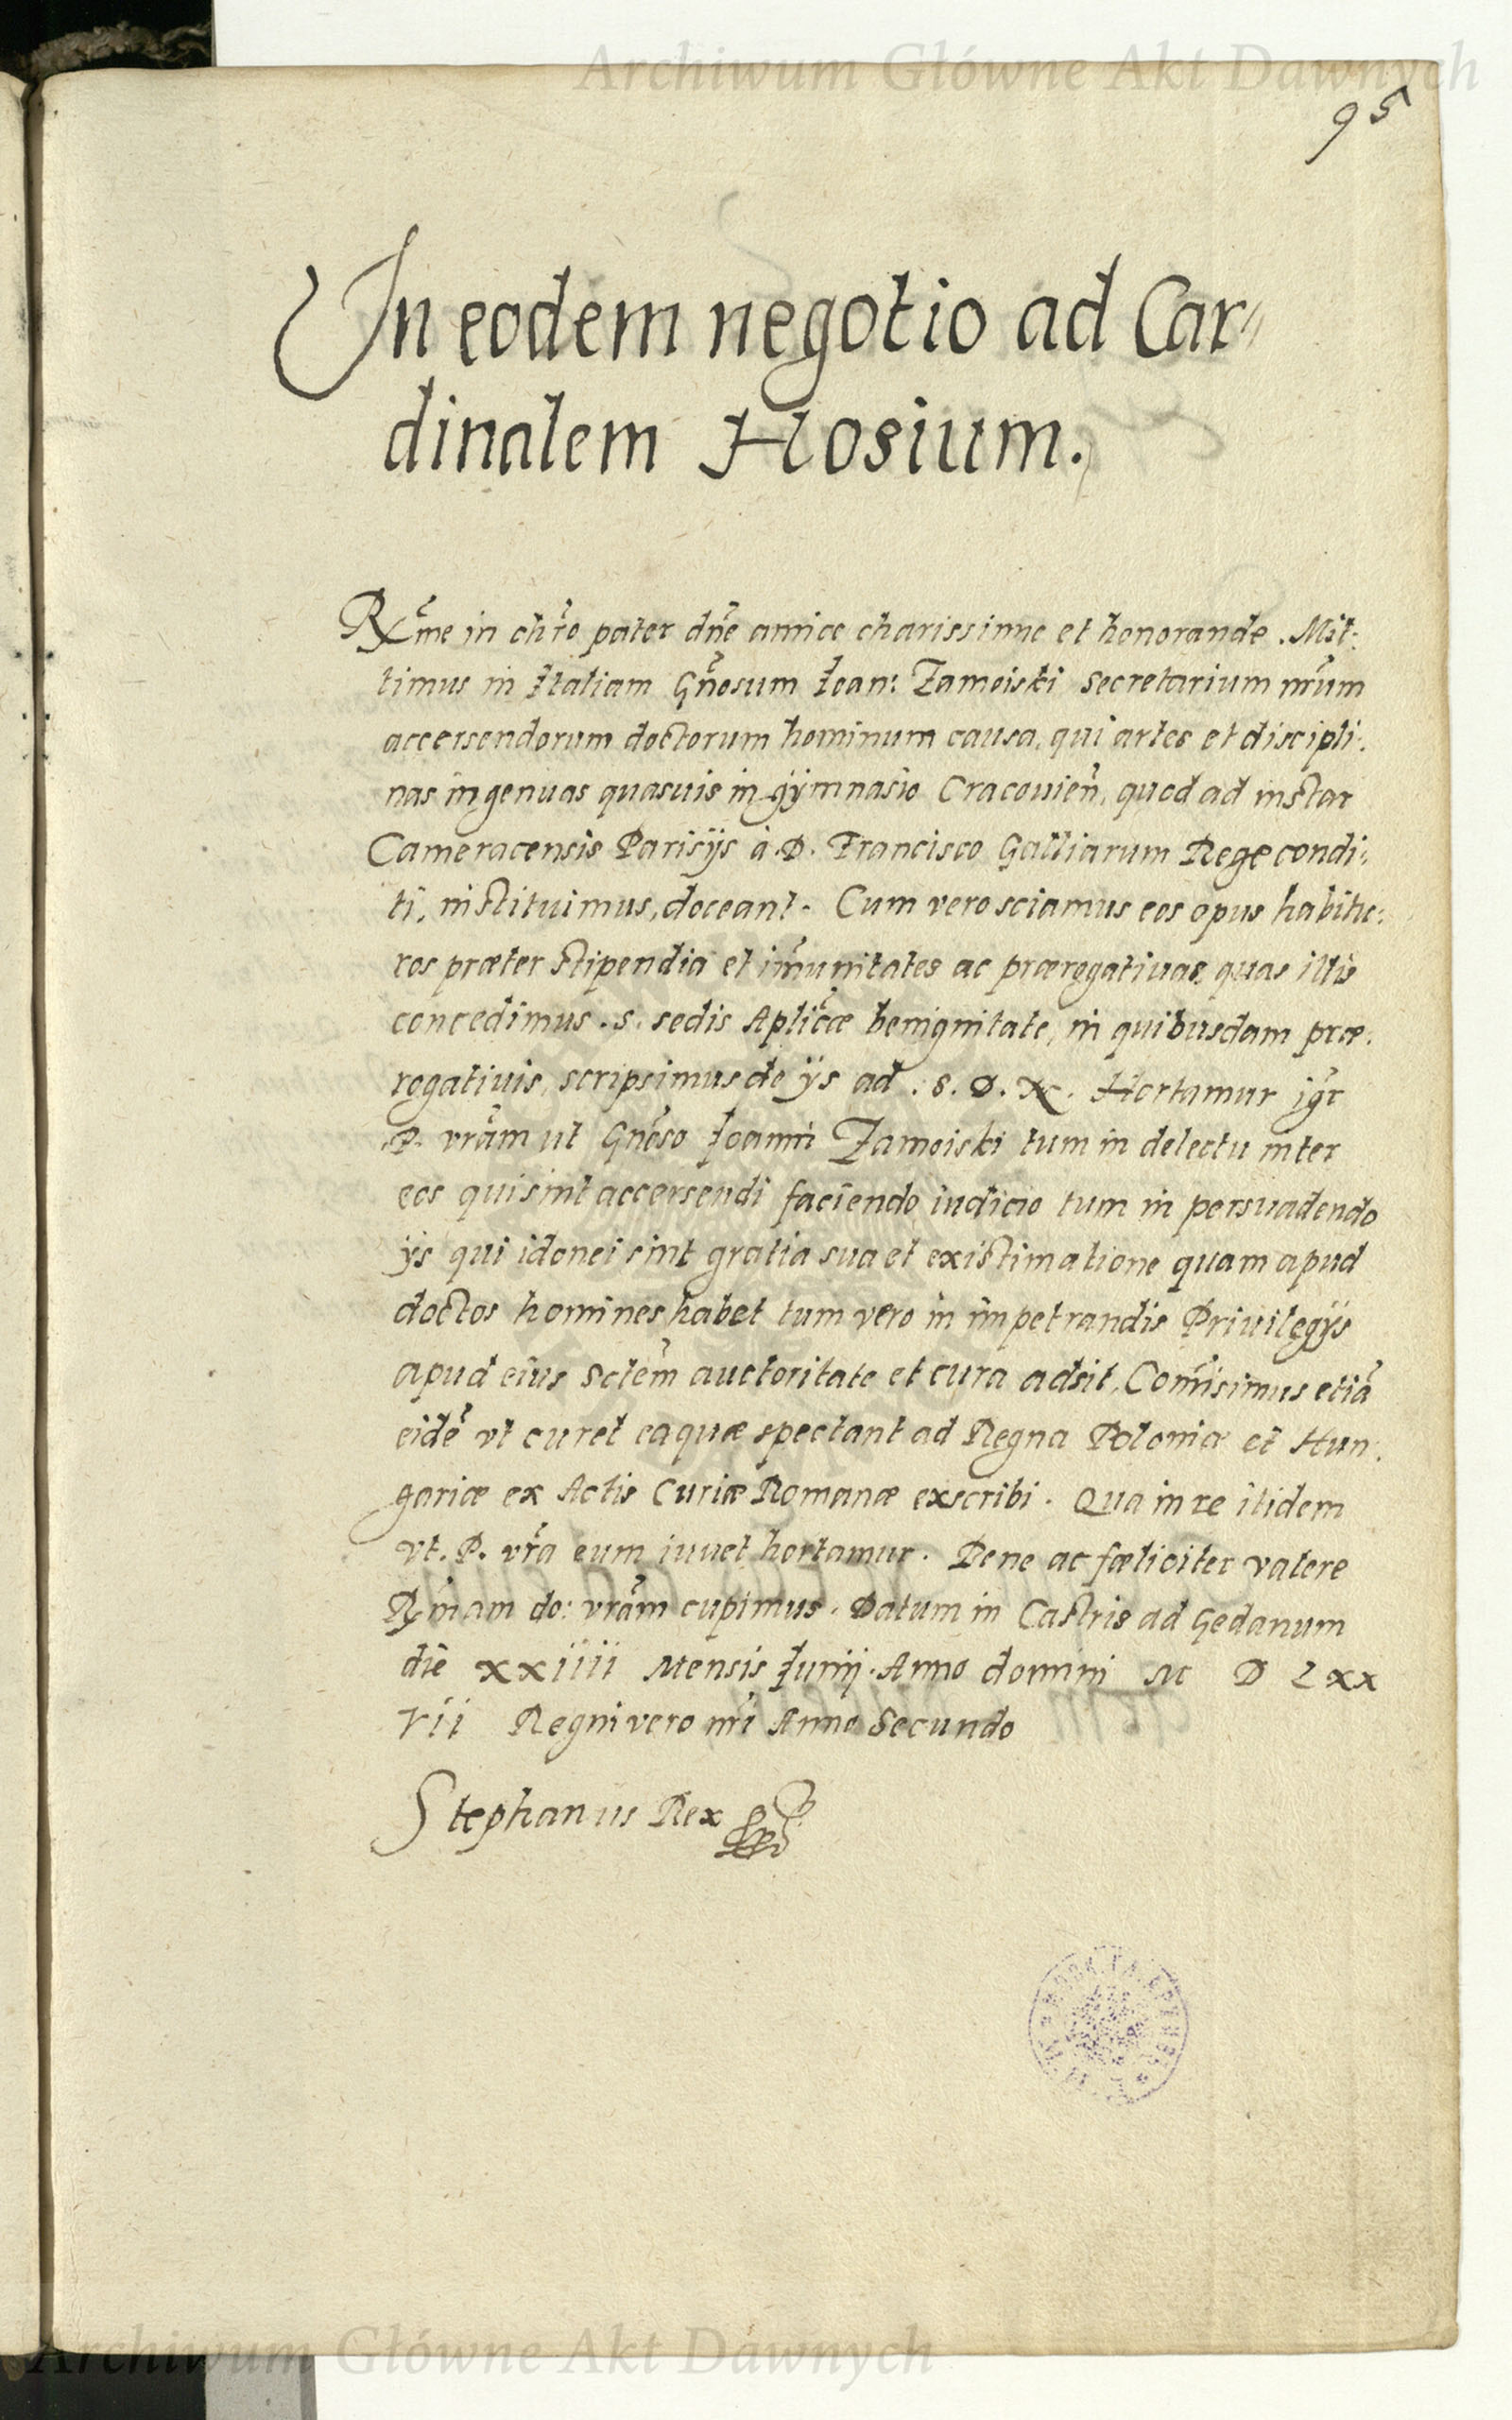 Archiwum Główne Akt Dawnych
95
In eodem negotio ad Car〃
dinalem Hosium.
Rx̃me in chr̃o pater dñe amice charissime et honorande. Mit:
timus in Italiam Gñosum Ioan: Zamoiski Secretarium nr̃um
accersendorum doctorum hominum causa, qui artes et discipli:
nas ingenuas quasuis in gÿmnasio Cracouieñ, quod ad instar
Cameracensis Parisijs à .D. Francisco Galliarum Rege condi:
ti, instituimus, doceant. Cum vero sciamus eos opus habitu:
ros præter stipendia et im̃unitates ac prærogatiuas, quas illis
concedimus .s. sedis Aplic̃æ benignitate, in quibusdam præ:
rogatiuis, scripsimus de ijs ad .S. D. N. Hortamur igr̃
.P. vrãm ut Gñoso Ioanni Zamoiski tum in delectu inter
eos qui sint accersendi faciendo iudicio tum in persuadendo
ijs qui idonei sint gratia sua et existimatione quam apud
doctos homines habet tum vero in impetrandis Priuilegijs
apud eius Sctem̃ auctoritate et cura adsit. Com̃isimus etiã
eidẽ vt curet ea quæ spectant ad Regna Poloniæ et Hun:
gariæ ex Actis Curiæ Romanæ exscribi. Qua in re itidem
vt. P. vr̃a eum iuuet hortamur. Bene ac fæliciter valere
Rm̃am do: vrãm cupimus. Datum in Castris ad Gedanum
die xxiiii Mensis Iunij. Anno domini M D Lxx
Vii Regni vero nr̃i Anno Secundo
Stephanus Rex
Archiwum Główne Akt Dawnych